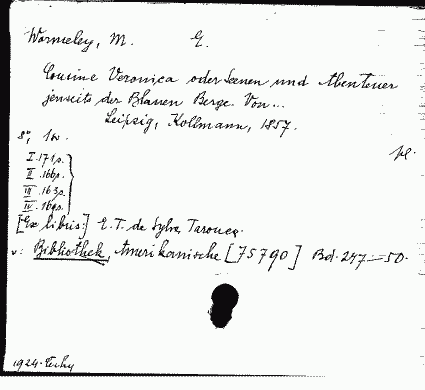 Wormeley, M. E.
Cousine Veronica oder Scenen und Abenteuer
jenseits der Blauen Berge. Von...
Leipzig, Kollmann, 1857.
8°, 1w.
pl.
I. 171p.
II. 166p.
III. 163p.
IV. 169p.
[Ex libris:] E. T. de Sylva Tarouca.
v: Bibliothek, Amerikanische [75790] Bd. 247=50.
1924.